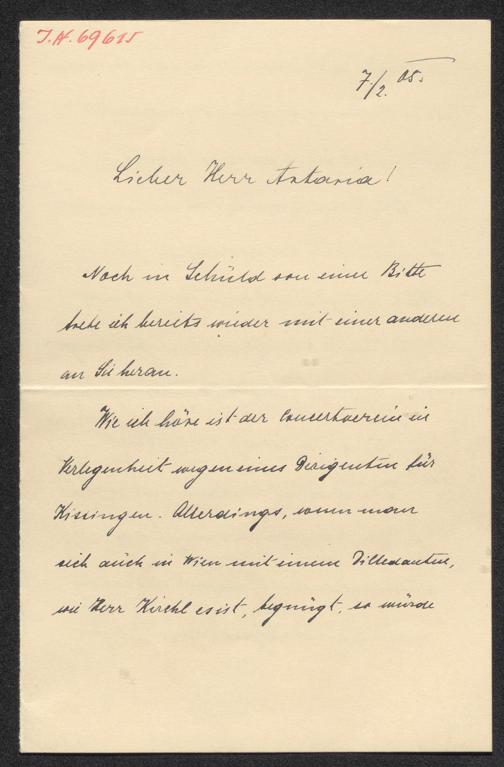 I.N. 69615
7./2. 05.
Lieber Herr Artaria!
Noch in Schuld von einer Bitte
trete ich bereits wieder mit einer anderen
an Sie heran.
Wie ich höre ist der Concertverein in
Verlegenheit wegen eines Dirigenten für
Kissingen. Allerdings, wenn man
sich auch in Wien mit einem Dilledanten,
wie Herr Kirchl es ist, begnügt, so würde